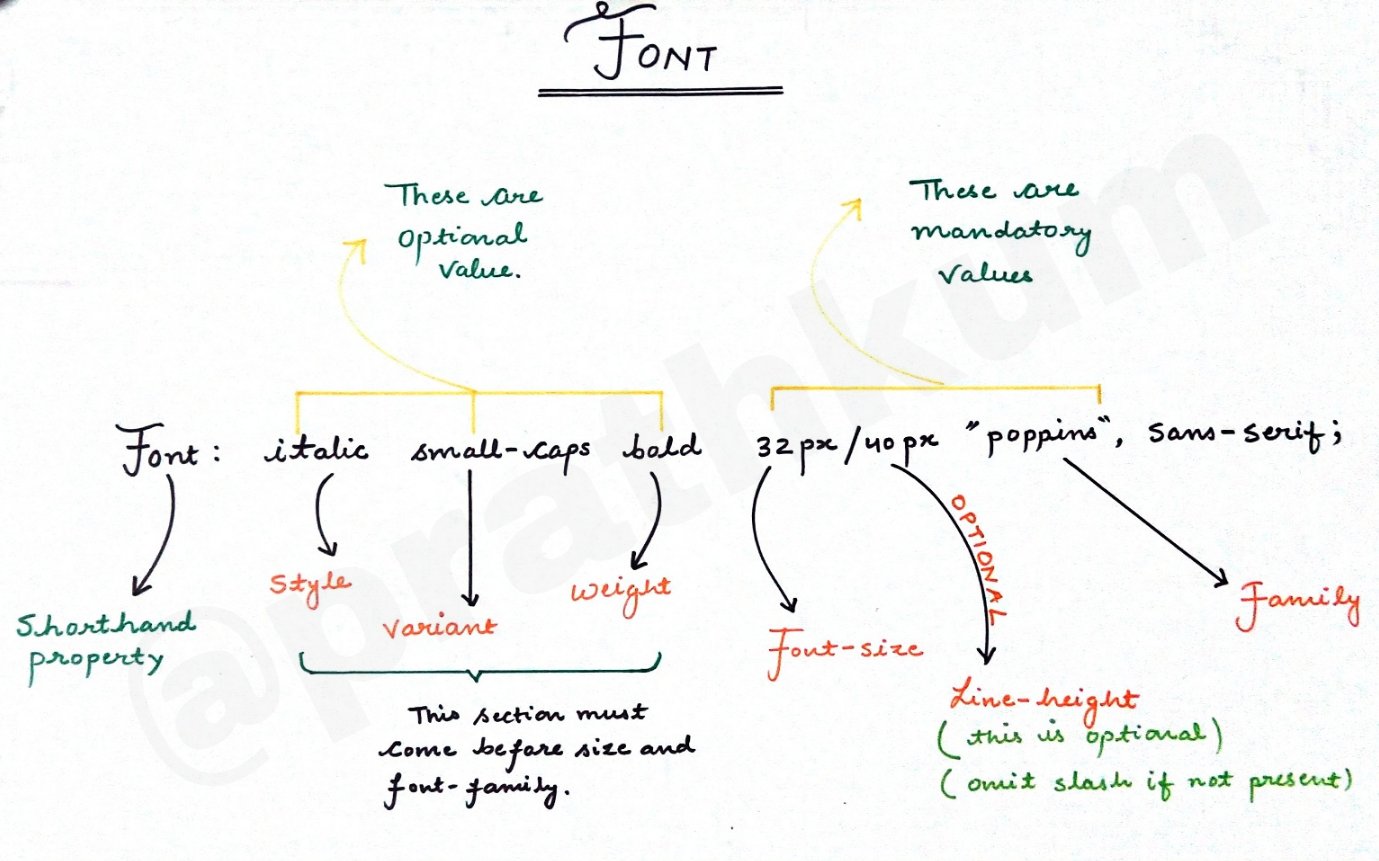 FONT
These are
optional
value.
These are
mandatory
values
Font: italic small-caps bold 32px/40px "poppins", sans-serif;
OPTIONAL
Style
Weight
Family
Shorthand
property
Variant
Font-size
Line-height
(this is optional)
(omit slash if not present)
This section must
come before size and
font-family.
@prathkum